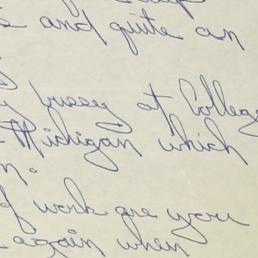 and quite an
busy at College
Michigan which
of work are you
again when